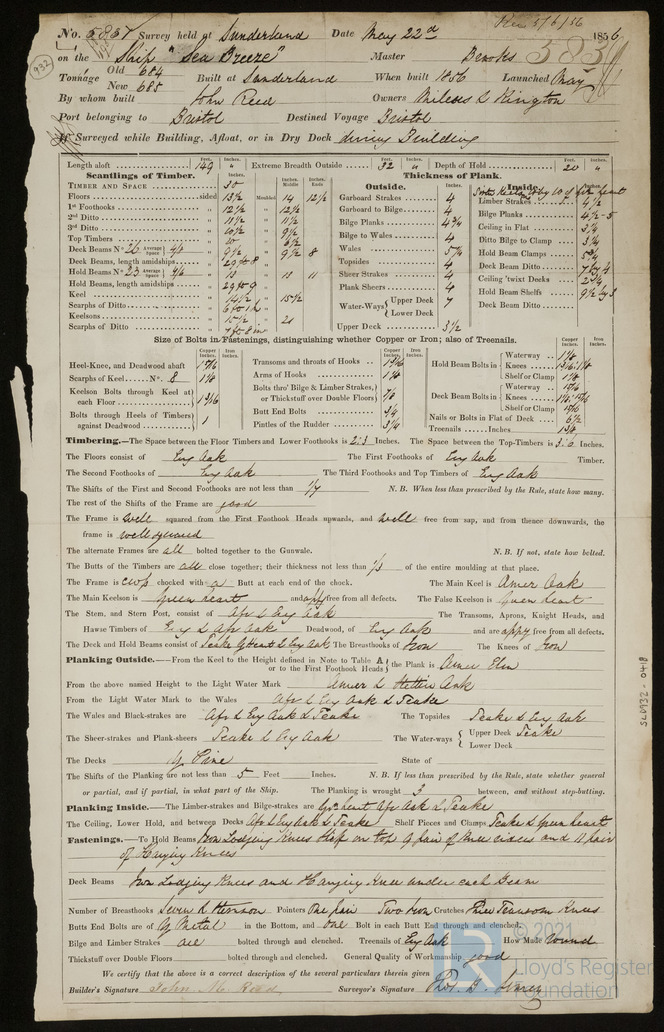 Rec 5/6/56
No. 5867 Survey held at Sunderland Date May 22d 1856
on the Ship "Sea Breeze" Master Brooks
932
Tonnage Old 684 New 685 Built at Sunderland When built 1856 Launched May
By whom built John Reed Owners Miles & Kington
Port belonging to Bristol Destined Voyage Bristol
If Surveyed while Building, Afloat, or in Dry Dock during Building
Length aloft 149 Extreme Breadth Outside 32 Depth of Hold 20
Scantlings of Timber.
TIMBER AND SPACE 30
Floors sided 13½ Moulded 14 12½
1st Foothooks 12½ 12½
2nd Ditto 11½ 11½
3rd Ditto 10½ 9½
Top Timbers 10 6½
Deck Beams No. 26 Average Space 4/1 9½ 9½ 8
Deck Beams, length amidships 29 ft 8
Hold Beams No. 23 Average Space 4/6 13 13 11
Hold Beams, length amidships 29 ft 9
Keel 14½ 15½
Scarphs of Ditto
Keelsons 15½ 21
Scarphs of Ditto 7 ft 8 in
Thickness of Plank.
Outside.
Garboard Strakes 4
Garboard to Bilge 4
Bilge Planks 4¾
Bilge to Wales 4
Wales 5¼
Topsides 4
Sheer Strakes 4
Plank Sheers 4
Water-Ways Upper Deck 7
Lower Deck
Upper Deck 3½
Inside.
Limber Strakes 4½
Bilge Planks 4½-5
Ceiling in Flat 3¼
Ditto Bilge to Clamp 3¼
Hold Beam Clamps 5¾
Deck Beam Ditto 7 by 4
Ceiling 'twixt Decks 2¾
Hold Beam Shelfs 9½ by 5
Deck Beam Ditto
Size of Bolts in Fastenings, distinguishing whether Copper or Iron; also of Treenails.
Heel-Knee, and Deadwood abaft 1 5/16
Scarphs of Keel No. 8 1⅛
Keelson Bolts through Keel at each Floor 1 3/16
Bolts through Heels of Timbers against Deadwood 1
Transoms and throats of Hooks 1 3/16
Arms of Hooks 1⅛
Bolts thro' Bilge & Limber Strakes, or Thickstuff over Double Floors 7/8
Butt End Bolts ¾
Pintles of the Rudder 3¼
Hold Beam Bolts in Waterway 1⅛
Knees 1 3/16 : 1⅛
Shelf or Clamp 1⅛
Deck Beam Bolts in Waterway 15/16
Knees 1⅛ : 15/16
Shelf or Clamp 15/16
Nails or Bolts in Flat of Deck 6½
Treenails Inches 1¾
Timbering.—The Space between the Floor Timbers and Lower Foothooks is 2:3 Inches. The Space between the Top-Timbers is 3:0 Inches.
The Floors consist of Eng Oak The First Foothooks of Eng Oak Timber.
The Second Foothooks of Eng Oak The Third Foothooks and Top Timbers of Eng Oak
The Shifts of the First and Second Foothooks are not less than 1/7 N. B. When less than prescribed by the Rule, state how many.
The rest of the Shifts of the Frame are good
The Frame is well squared from the First Foothook Heads upwards, and well free from sap, and from thence downwards, the
frame is well squared
The alternate Frames are all bolted together to the Gunwale. N. B. If not, state how bolted.
The Butts of the Timbers are all close together; their thickness not less than ⅓ of the entire moulding at that place.
The Frame is chocked with a Butt at each end of the chock. The Main Keel is Amer Oak
The Main Keelson is Green heart and appy free from all defects. The False Keelson is Green heart
The Stem, and Stern Post, consist of Afr & Eng Oak The Transoms, Aprons, Knight Heads, and
Hawse Timbers of Eng & Afr Oak Deadwood, of Eng Oak and are appy free from all defects.
The Deck and Hold Beams consist of Teake G Heart & Eng Oak The Breasthooks of Iron The Knees of Iron
Planking Outside.—From the Keel to the Height defined in Note to Table A or to the First Foothook Heads the Plank is Amer Elm
From the above named Height to the Light Water Mark Amer & Stettin Oak
From the Light Water Mark to the Wales Afr & Eng Oak & Teake
The Wales and Black-strakes are Afr & Eng Oak & Teake The Topsides Teake & Eng Oak
The Sheer-strakes and Plank-sheers Teake & Eng Oak The Water-ways Upper Deck Teake
Lower Deck
The Decks Y Pine State of
The Shifts of the Planking are not less than 5 Feet Inches. N. B. If less than prescribed by the Rule, state whether general
or partial, and if partial, in what part of the Ship. The Planking is wrought 3 between, and without step-butting.
Planking Inside.—The Limber-strakes and Bilge-strakes are Grn heart Afr Oak & Teake
The Ceiling, Lower Hold, and between Decks Afr & Eng Oak & Teake Shelf Pieces and Clamps Teake & Green heart
Fastenings.—To Hold Beams Iron Lodging Knees Shelf on top 9 pair of Knee riders and 11 pair
of Hanging Knees
Deck Beams Iron Lodging Knees and Hanging Knee under each Beam
Number of Breasthooks Seven & Sternson Pointers One pair Two Iron Crutches Three Transom Knees
Butts End Bolts are of Y Metal in the Bottom, and one Bolt in each Butt End through and clenched.
Bilge and Limber Strakes are bolted through and clenched. Treenails of Eng Oak How Made Wound
Thickstuff over Double Floors bolted through and clenched. General Quality of Workmanship good
We certify that the above is a correct description of the several particulars therein given
Builder's Signature John M. Reed Surveyor's Signature
SL0932-0418
© 2021
Lloyd's Register
Foundation